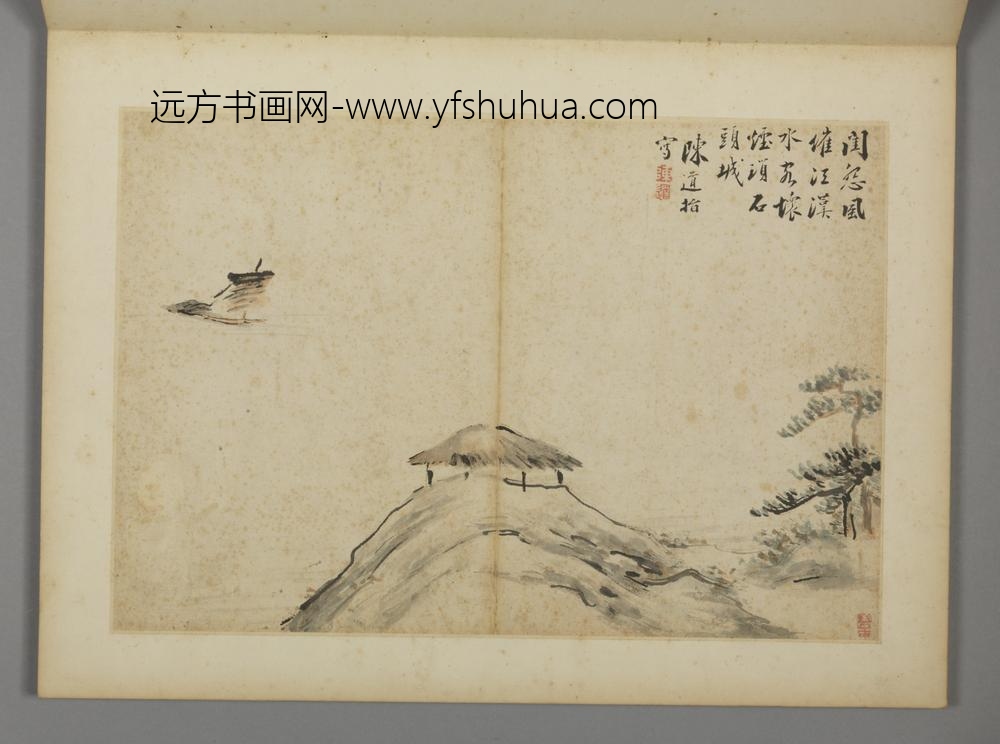 远方书画网-www.yfshuhua.com
閨怨風
催江漢
水客懷
煙瑣石
頭城
陳道指
寫